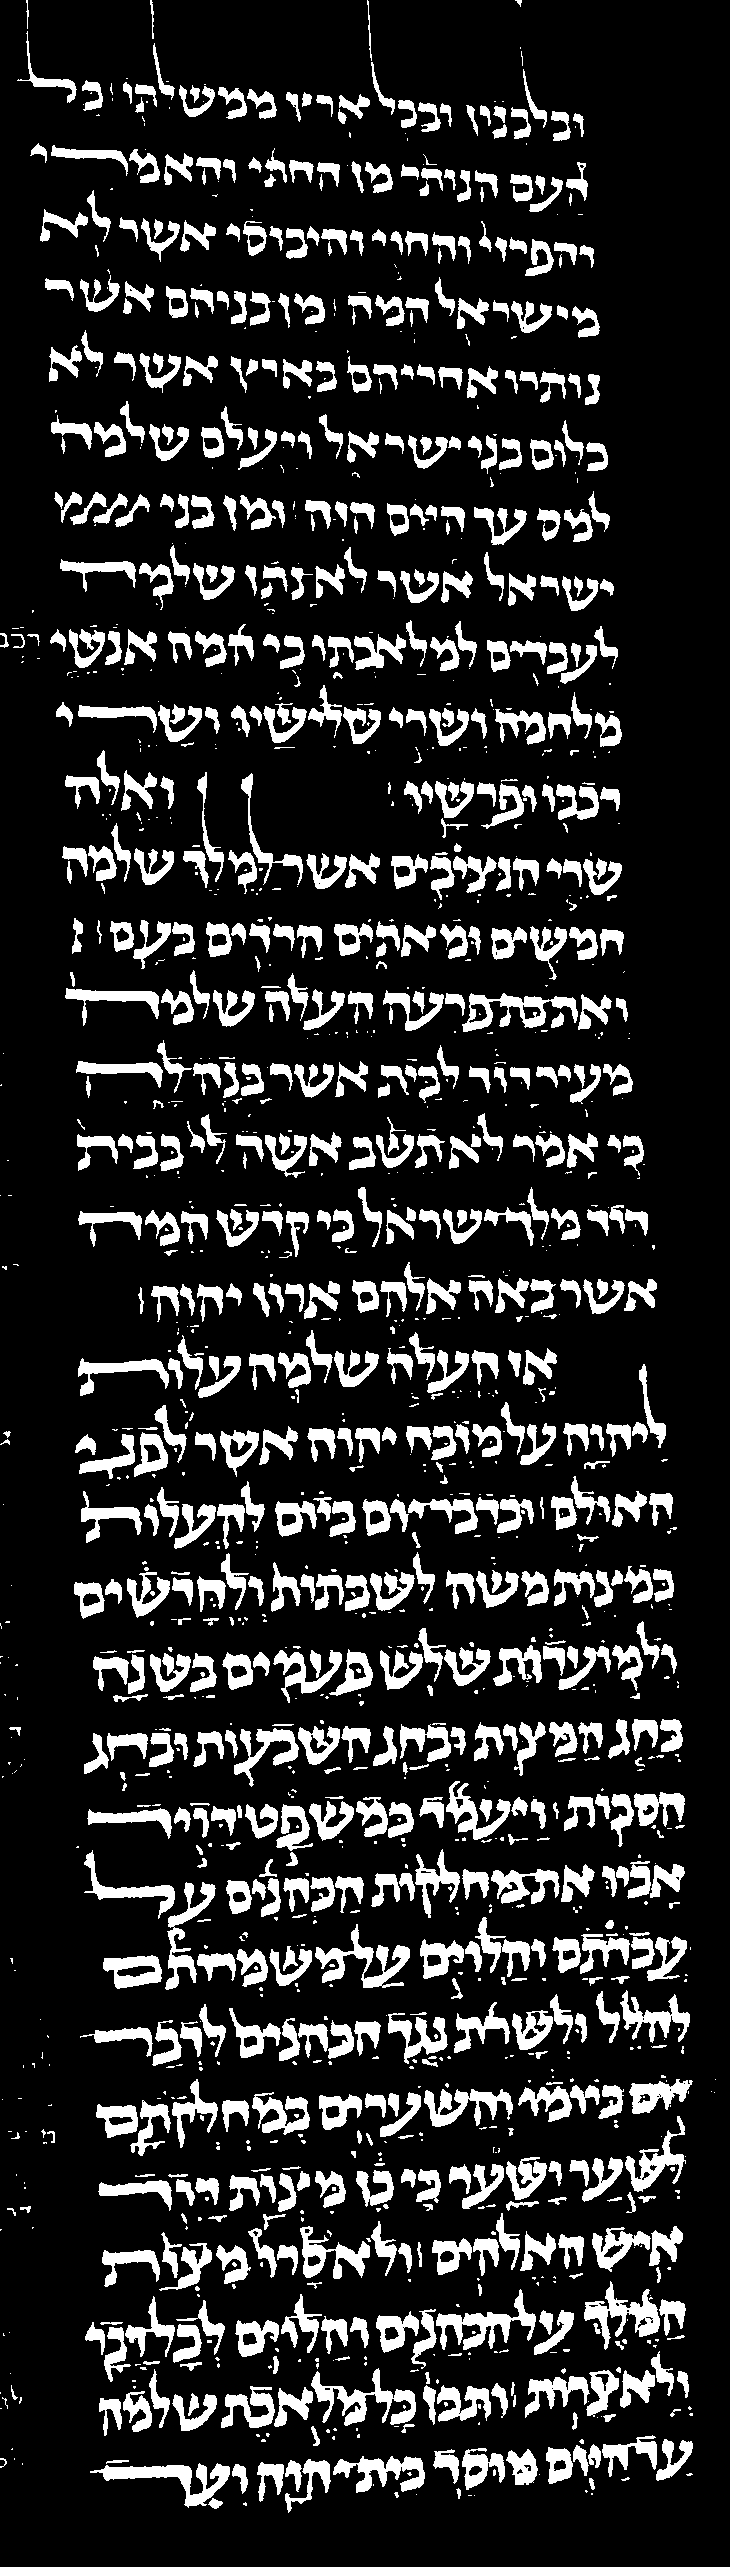 ובלבנון ובכל ארץ ממשלתו כל
העם הנותר מן החתי והאמרי
והפרזי והחוי והיבוסי אשר לא
מישראל המה מן בניהם אשר
נותרו אחריהם בארץ אשר לא
כלום בני ישראל ויעלם שלמה
למס עד היום הזה ומן בני
ישראל אשר לא נתן שלמה
לעבדים למלאכתו כי המה אנשי
מלחמה ושרי שלישיו ושרי
רכבו ופרשיו ואלה
שרי הנציבים אשר למלך שלמה
חמשים ומאתים הרדים בעם
ואת בת פרעה העלה שלמה
מעיר דויד לבית אשר בנה לה
כי אמר לא תשב אשה לי בבית
דויד מלך ישראל כי קדש המה
אשר באה אלהם ארון יהוה
אז העלה שלמה עלות
ליהוה על מזבח יהוה אשר לפני
האולם ובדבר יום ביום להעלות
כמצות משה לשבתות ולחדשים
ולמועדות שלש פעמים בשנה
בחג המצות ובחג השבעות ובחג
הסכות ויעמד כמשפט דויד
אביו את מחלקות הכהנים על
עבדתם והלוים על משמרותם
להלל ולשרת נגד הכהנים לדבר
יום ביומו והשערים במחלקתם
לשער ושער כי כן מצות דויד
איש האלהים ולא סרו מצות
המלך על הכהנים והלוים לכל דבר
ולאצרות ותכן כל מלאכת שלמה
עד היום מוסד בית יהוה ועד